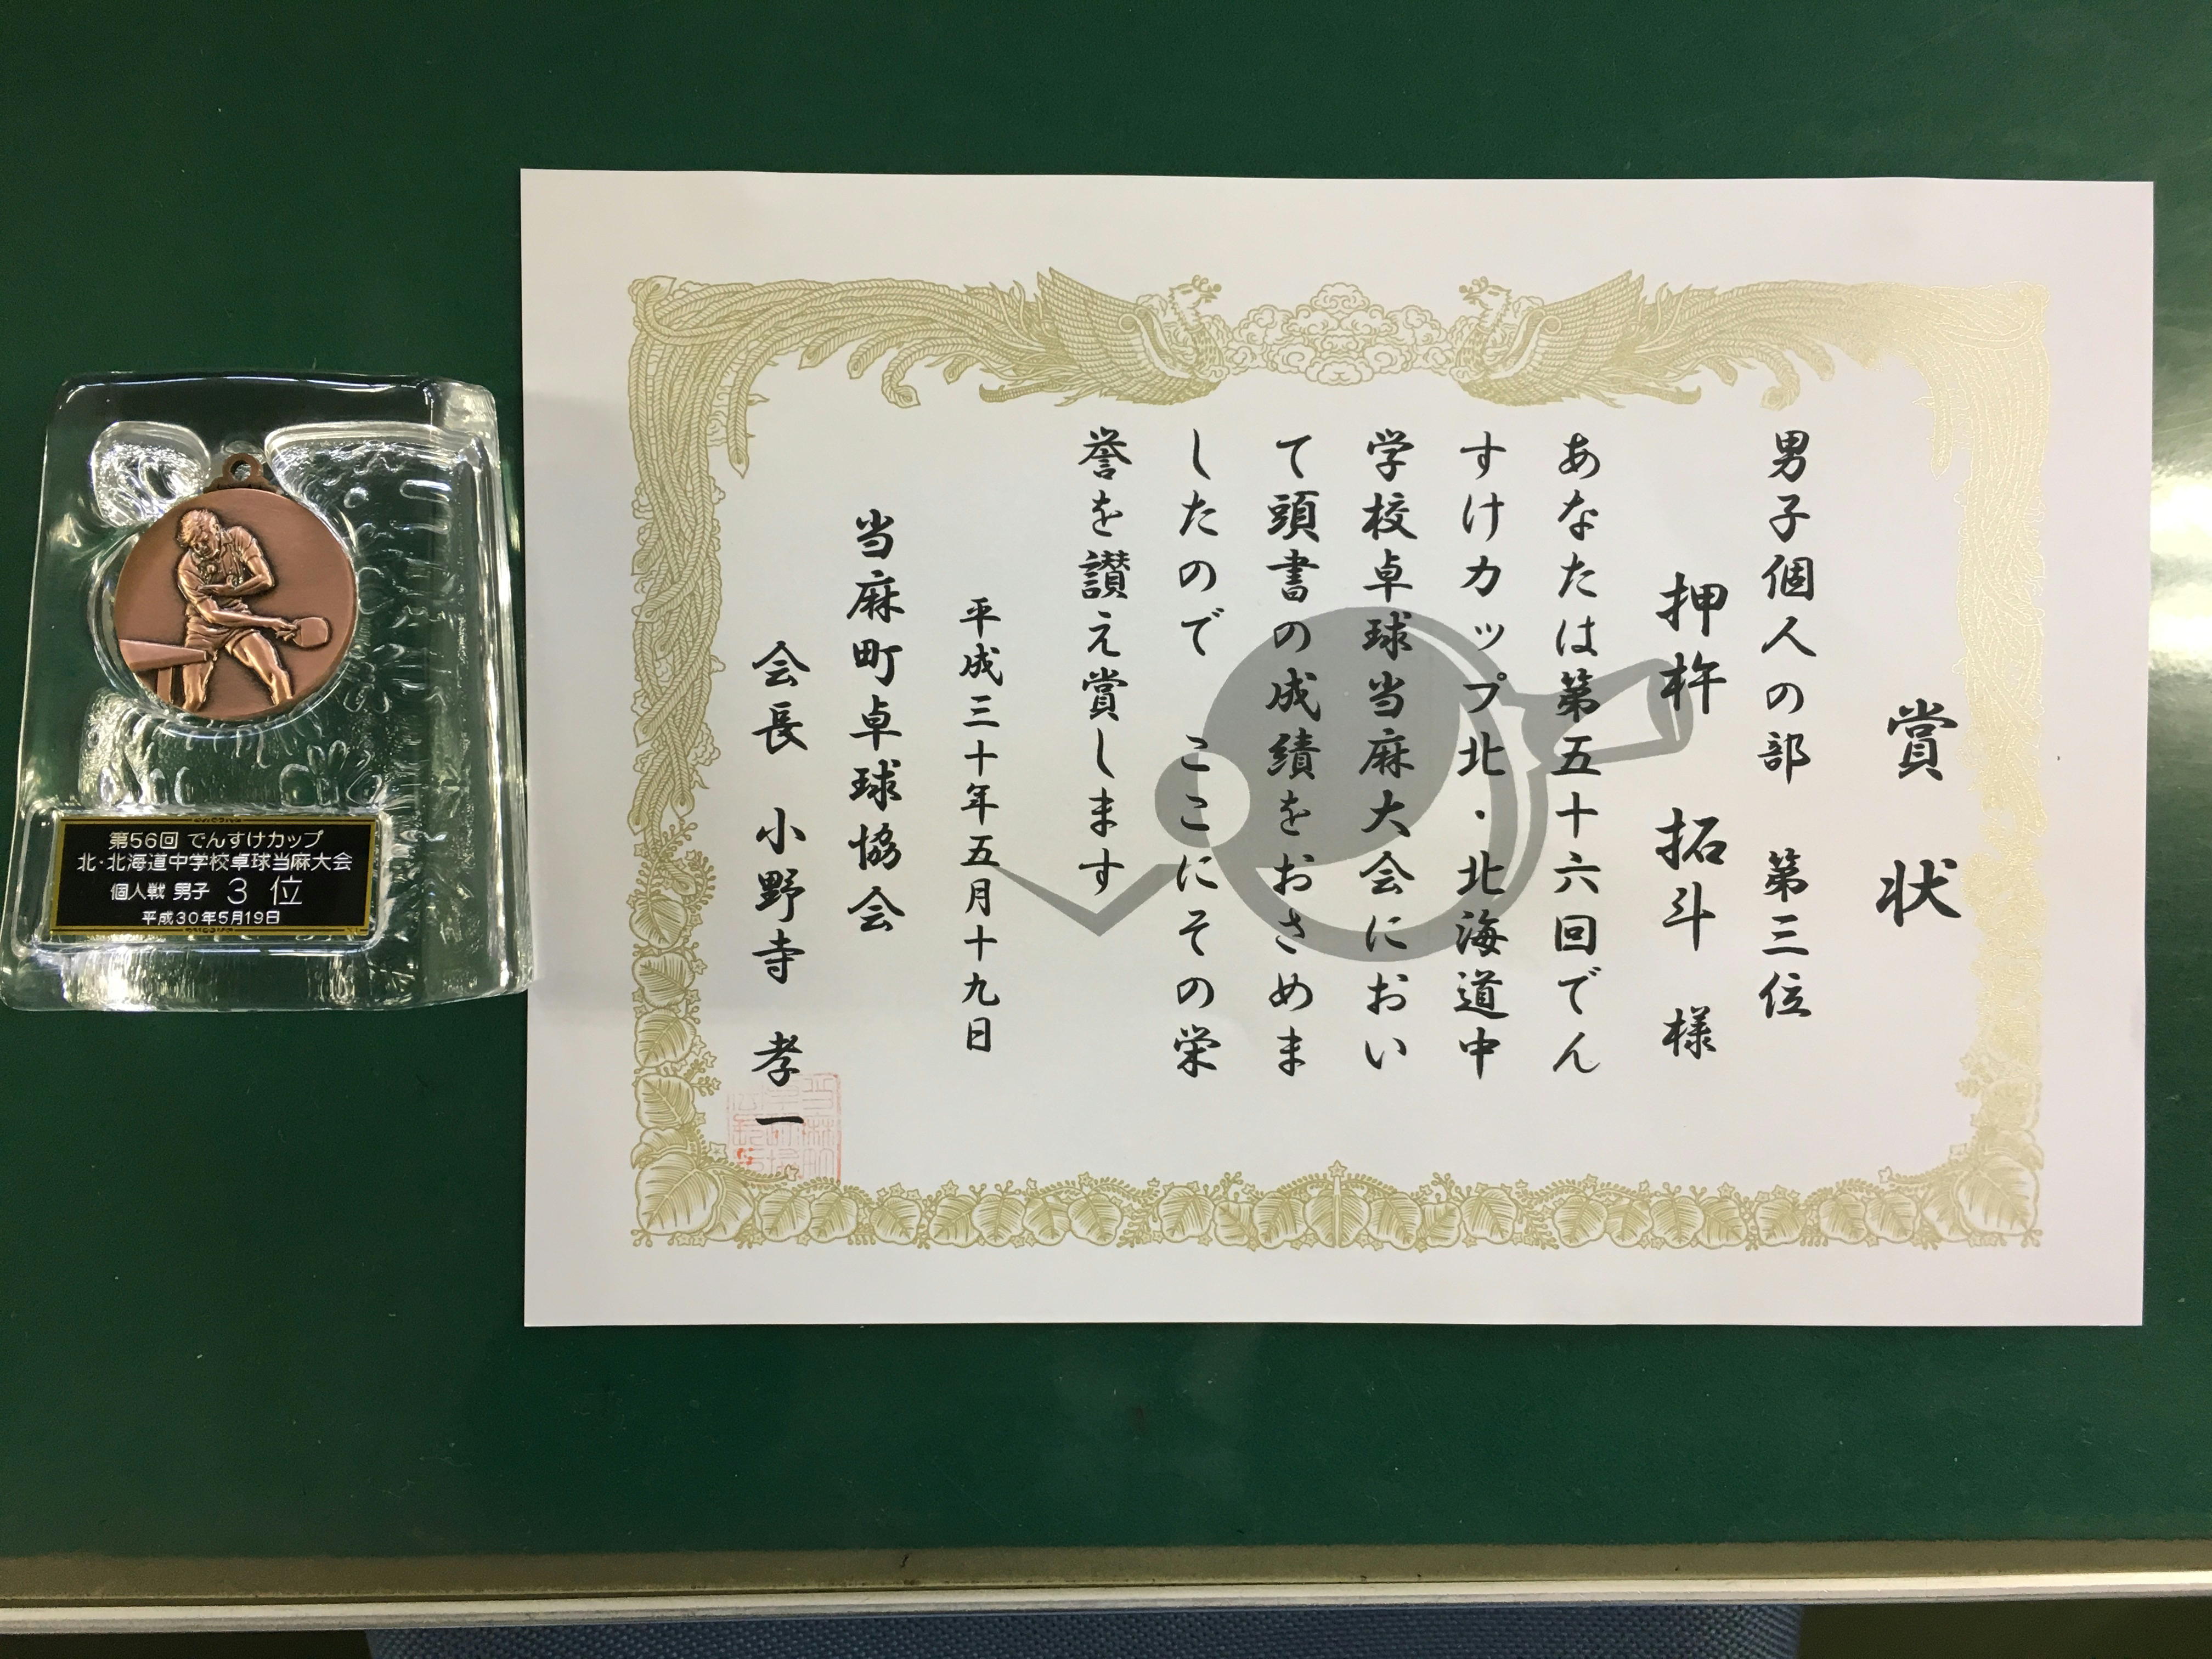 賞状
男子個人の部 第三位
押杵 拓斗 様
あなたは第五十六回でん
すけカップ北・北海道中
学校卓球当麻大会におい
て頭書の成績をおさめま
したので ここにその栄
誉を讃え賞します
平成三十年五月十九日
当麻町卓球協会
会長 小野寺 孝一
第56回 でんすけカップ
北・北海道中学校卓球当麻大会
個人戦 男子 3 位
平成30年5月19日